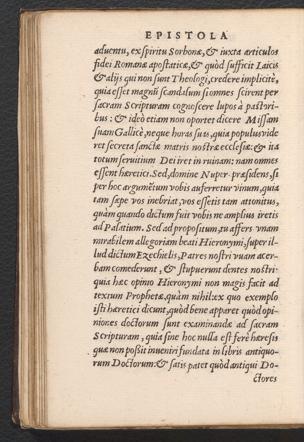 EPISTOLA
aduentu, ex spiritu Sorbonæ, & iuxta articulos
fidei Romanæ apostaticæ, & quòd sufficit Laicis
& alijs qui non sunt Theologi, credere implicitè,
quia esset magnū scandalum si omnes scirent per
sacram Scripturam cognoscere lupos à pastori-
bus: & ideò etiam non oportet dicere Missam
suam Gallicè, neque horas suas, quia populus vide
ret secreta sanctæ matris nostræ ecclesiæ: & ita
totum seruitium Dei iret in ruinam: nam omnes
essent hæretici. Sed, domine Nuper-præsidens, si
per hoc argumētum vobis auferretur vinum, quia
tam sæpe vos inebriat, vos essetis tam attonitus,
quàm quando dictum fuit vobis ne amplius iretis
ad Palatium. Sed ad propositum, tu affers vnam
mirabilem allegoriam beati Hieronymi, super il-
lud dictum Ezechielis, Patres nostri vuam acer-
bam comederunt, & stupuerunt dentes nostri:
quia hæc opinio Hieronymi non magis facit ad
textum Prophetæ, quàm nihil: ex quo exemplo
isti hæretici dicunt, quòd bene apparet quòd opi-
niones doctorum sunt examinandæ ad sacram
Scripturam, quia sine hoc nulla est ferè hæresis
quæ non possit inueniri fundata in libris antiquo-
rum Doctorum: & satis patet quòd antiqui Do-
ctores